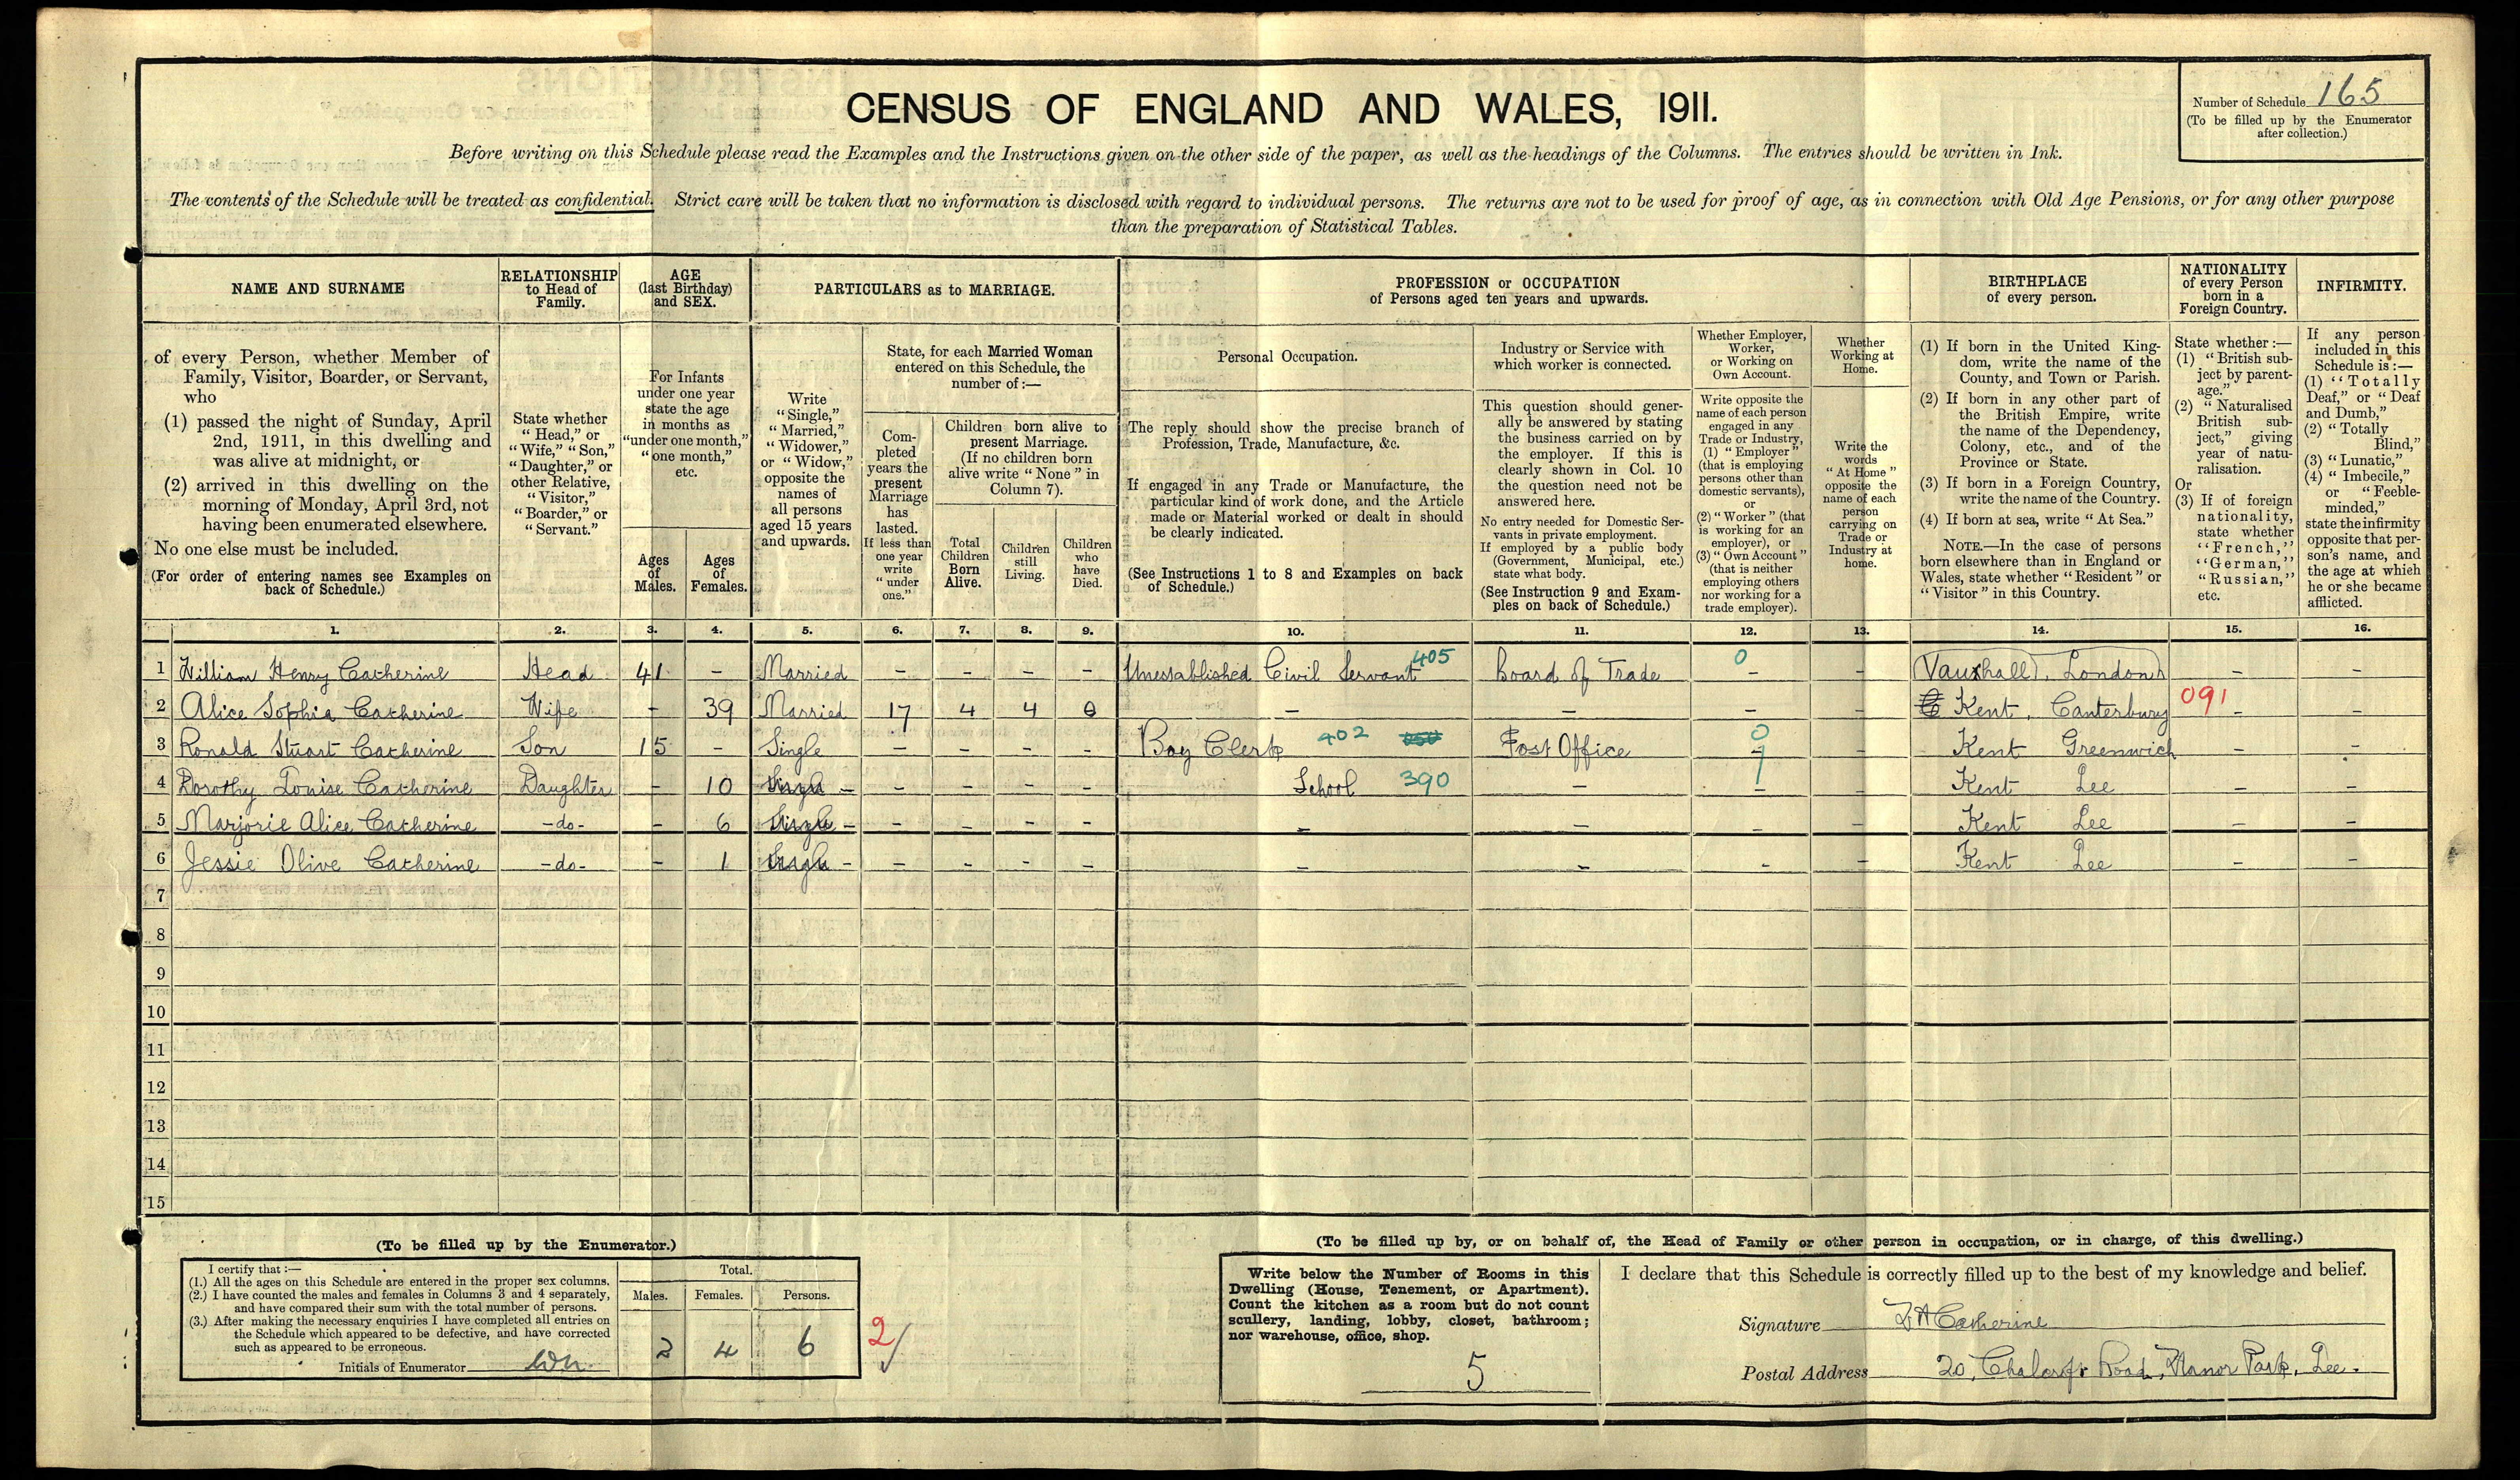 CENSUS OF ENGLAND AND WALES, 1911.
Number of Schedule 165
(To be filled up by the Enumerator
after collection.)
Before writing on this Schedule please read the Examples and the Instructions given on the other side of the paper, as well as the headings of the Columns. The entries should be written in Ink.
The contents of the Schedule will be treated as confidential. Strict care will be taken that no information is disclosed with regard to individual persons. The returns are not to be used for proof of age, as in connection with Old Age Pensions, or for any other purpose
than the preparation of Statistical Tables.
NAME AND SURNAME
of every Person, whether Member of
Family, Visitor, Boarder, or Servant,
who
(1) passed the night of Sunday, April
2nd, 1911, in this dwelling and
was alive at midnight, or
(2) arrived in this dwelling on the
morning of Monday, April 3rd, not
having been enumerated elsewhere.
No one else must be included.
(For order of entering names see Examples on
back of Schedule.)
RELATIONSHIP
to Head of
Family.
State whether
"Head," or
"Wife," "Son,"
"Daughter," or
other Relative,
"Visitor,"
"Boarder," or
"Servant."
AGE
(last Birthday)
and SEX.
For Infants
under one year
state the age
in months as
"under one month,"
"one month,"
etc.
Ages
of
Males.
Ages
of
Females.
PARTICULARS as to MARRIAGE.
Write
"Single,"
"Married,"
"Widower,"
or "Widow,"
opposite the
names of
all persons
aged 15 years
and upwards.
State, for each Married Woman
entered on this Schedule, the
number of :—
Com-
pleted
years the
present
Marriage
has
lasted.
If less than
one year
write
"under
one."
Children born alive to
present Marriage.
(If no children born
alive write "None" in
Column 7).
Total
Children
Born
Alive.
Children
still
Living.
Children
who
have
Died.
PROFESSION or OCCUPATION
of Persons aged ten years and upwards.
Personal Occupation.
The reply should show the precise branch of
Profession, Trade, Manufacture, &c.
If engaged in any Trade or Manufacture, the
particular kind of work done, and the Article
made or Material worked or dealt in should
be clearly indicated.
(See Instructions 1 to 8 and Examples on back
of Schedule.)
Industry or Service with
which worker is connected.
This question should gener-
ally be answered by stating
the business carried on by
the employer. If this is
clearly shown in Col. 10
the question need not be
answered here.
No entry needed for Domestic Ser-
vants in private employment.
If employed by a public body
(Government, Municipal, etc.)
state what body.
(See Instruction 9 and Exam-
ples on back of Schedule.)
Whether Employer,
Worker,
or Working on
Own Account.
Write opposite the
name of each person
engaged in any
Trade or Industry,
(1) "Employer"
(that is employing
persons other than
domestic servants),
or
(2) "Worker" (that
is working for an
employer), or
(3) "Own Account"
(that is neither
employing others
nor working for a
trade employer).
Whether
Working at
Home.
Write the
words
"At Home"
opposite the
name of each
person
carrying on
Trade or
Industry at
home.
BIRTHPLACE
of every person.
(1) If born in the United King-
dom, write the name of the
County, and Town or Parish.
(2) If born in any other part of
the British Empire, write
the name of the Dependency,
Colony, etc., and of the
Province or State.
(3) If born in a Foreign Country,
write the name of the Country.
(4) If born at sea, write "At Sea."
NOTE.—In the case of persons
born elsewhere than in England or
Wales, state whether "Resident" or
"Visitor" in this Country.
NATIONALITY
of every Person
born in a
Foreign Country.
State whether :—
(1) "British sub-
ject by parent-
age."
(2) "Naturalised
British sub-
ject," giving
year of natu-
ralisation.
Or
(3) If of foreign
nationality,
state whether
"French,"
"German,"
"Russian,"
etc.
INFIRMITY.
If any person
included in this
Schedule is :—
(1) "Totally
Deaf," or "Deaf
and Dumb,"
(2) "Totally
Blind,"
(3) "Lunatic,"
(4) "Imbecile,"
or "Feeble-
minded,"
state the infirmity
opposite that per-
son's name, and
the age at which
he or she became
afflicted.
1. 2. 3. 4. 5. 6. 7. 8. 9. 10. 11. 12. 13. 14. 15. 16.
1 William Henry Catherine Head 41 – Married – – – – Unestablished Civil Servant 405 Board of Trade 0 – – Vauxhall, London – –
2 Alice Sophia Catherine Wife – 39 Married 17 4 4 0 – – – – Kent, Canterbury 091 – –
3 Ronald Stuart Catherine Son 15 – Single – – – – Boy Clerk 402 Post Office 0 – – Kent Greenwich – –
4 Dorothy Louise Catherine Daughter – 10 Single – – – – – School 390 – – – Kent Lee – –
5 Marjorie Alice Catherine -do- – 6 Single – – – – – – – – – Kent Lee – –
6 Jessie Olive Catherine -do- – 1 Single – – – – – – – – – Kent Lee – –
7
8
9
10
11
12
13
14
15
(To be filled up by the Enumerator.)
I certify that :—
(1.) All the ages on this Schedule are entered in the proper sex columns.
(2.) I have counted the males and females in Columns 3 and 4 separately,
and have compared their sum with the total number of persons.
(3.) After making the necessary enquiries I have completed all entries on
the Schedule which appeared to be defective, and have corrected
such as appeared to be erroneous.
Initials of Enumerator
Total.
Males. Females. Persons.
2 4 6
2
(To be filled up by, or on behalf of, the Head of Family or other person in occupation, or in charge, of this dwelling.)
Write below the Number of Rooms in this
Dwelling (House, Tenement, or Apartment).
Count the kitchen as a room but do not count
scullery, landing, lobby, closet, bathroom;
nor warehouse, office, shop.
5
I declare that this Schedule is correctly filled up to the best of my knowledge and belief.
Signature WHCatherine
Postal Address 20, Road, Manor Park, Lee.